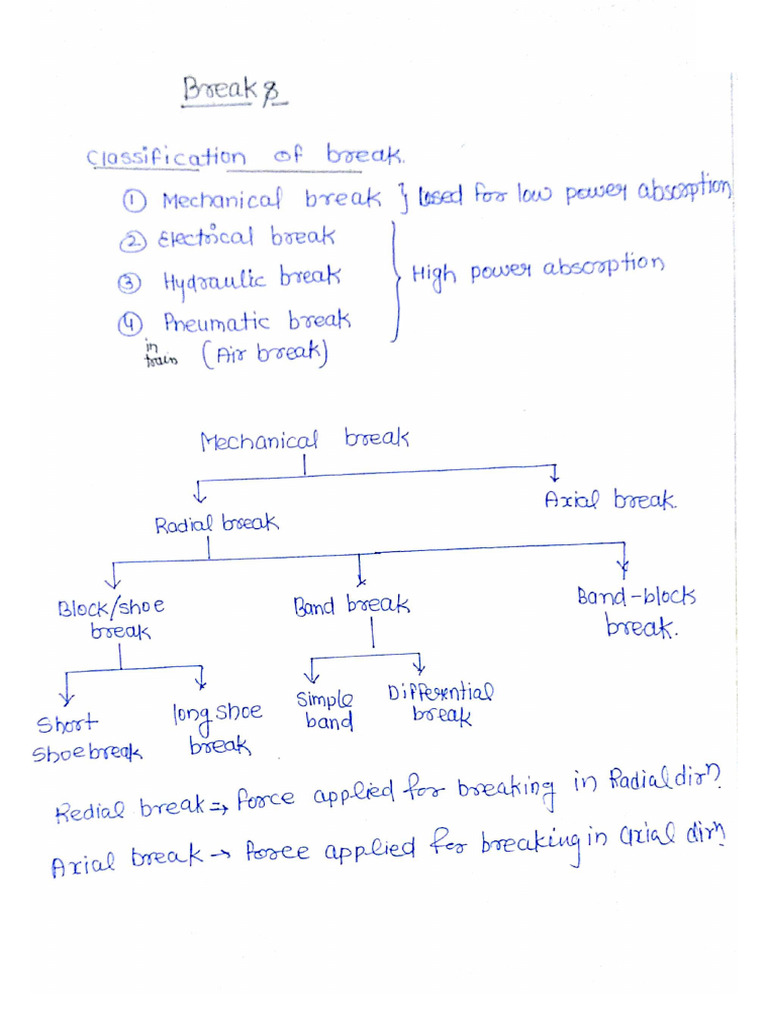 Breaks
Classification of break.
① Mechanical break } Used for low power absorption
② Electrical break
③ Hydraulic break } High power absorption
④ Pneumatic break
in train (Air break)
Mechanical break
Radial break Axial break.
Block/shoe break Band break Band-block break.
Short shoe break long shoe break Simple band Differential break
Redial break ⇒ Force applied for breaking in Radial dirⁿ.
Axial break → Force applied for breaking in axial dirⁿ